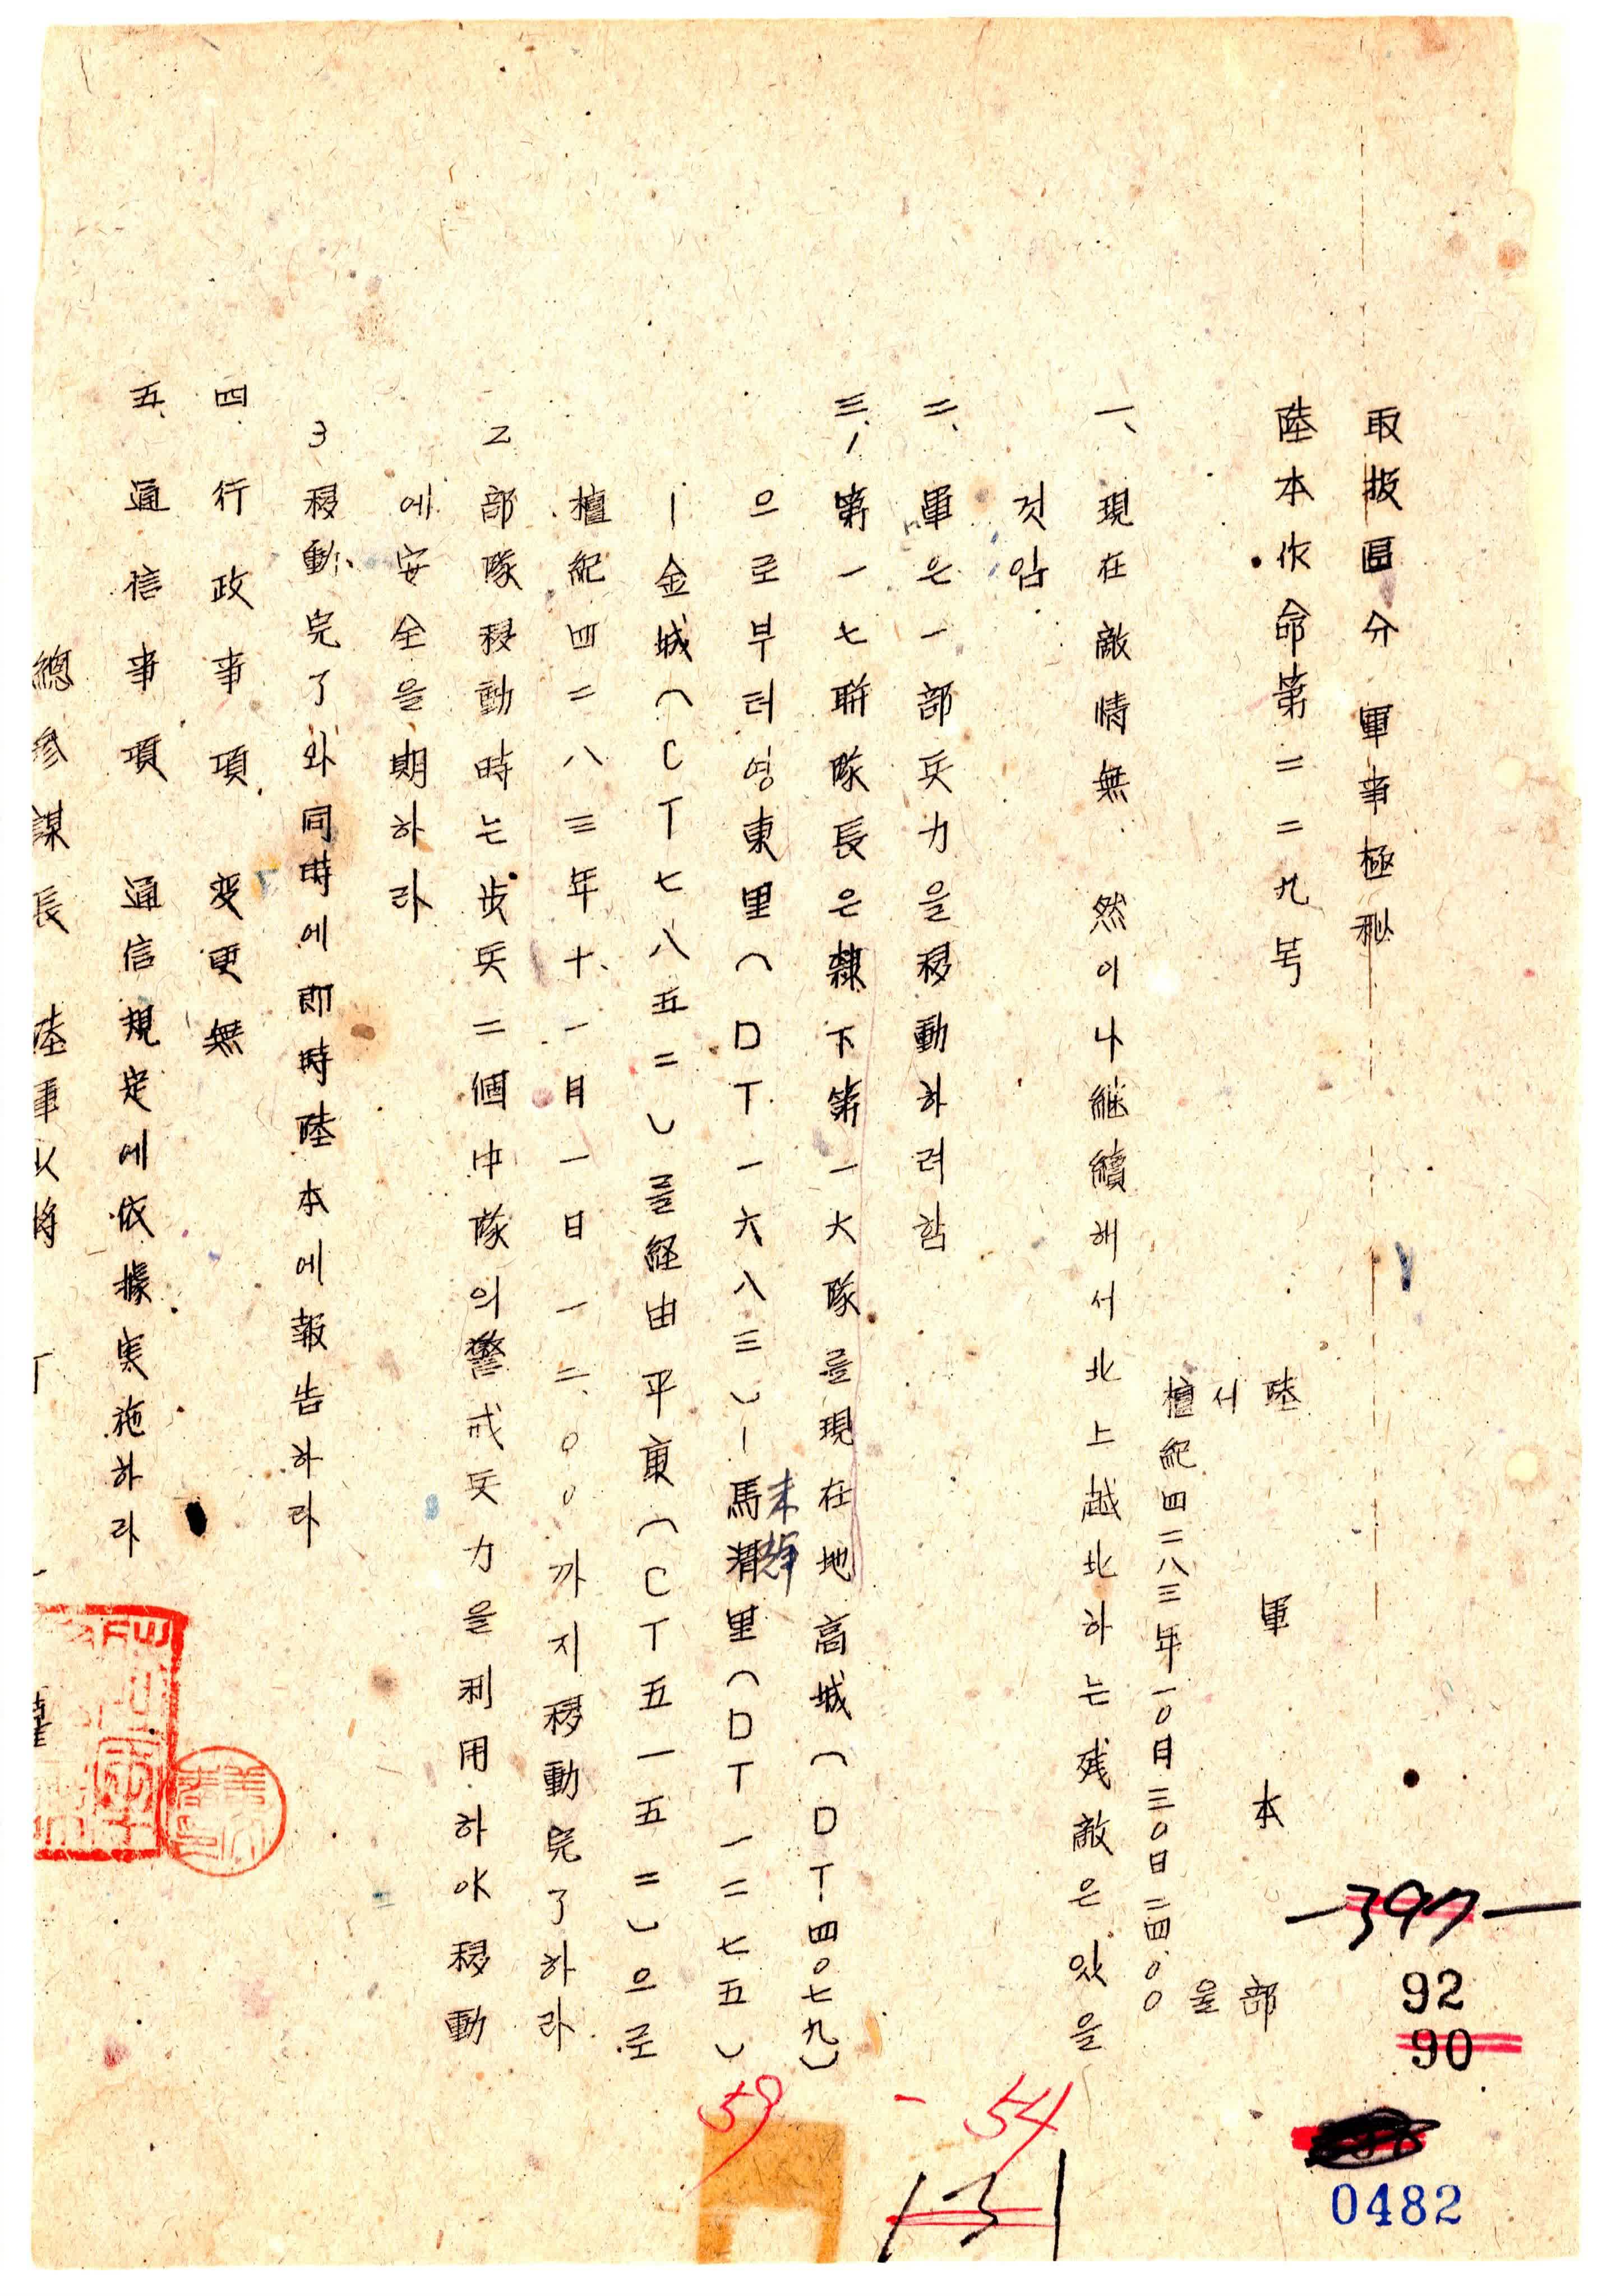 取扱区分 軍事極秘
陸本作命第二二九号
陸軍本部
서울
檀紀四二八三年一〇月三〇日二四.〇〇
一、現在敵情無. 然이나継續해서北上越北하는残敵은있을
것임
二、軍은一部兵力을移動하려함
三.1 第一七聯隊長은隷下第一大隊를現在地高城(DT四〇七九)
으로부터영東里(DT一六八三)—馬耒輝里(DT一二七五)
—金城(CT七八五二)를経由平康(CT五一五二)으로
檀紀四二八三年十一月一日一二.〇〇까지移動完了하라
2 部隊移動時는步兵二個中隊의警戒兵力을利用하야移動
에安全을期하라
3 移動完了와同時에即時陸本에報告하라
四. 行政事項. 変更無
五. 通信事項 通信規定에依據実施하라
總參謀長 陸軍少将 丁一權
397
92
90
0482
54
59
131